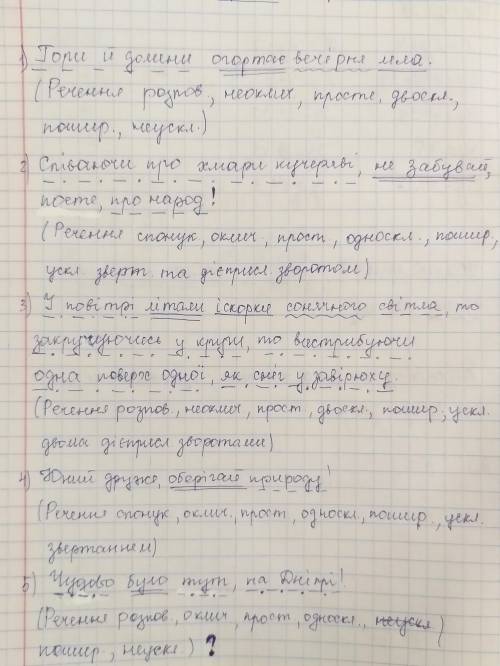 1) Гори й долини огортає вечірня мла.
(Речення розпов., неоклич, просте, двоскл.,
пошир., неускл.)
2) Співаючи про хмари кучеряві, не забувай,
поете, про народ!
(Речення спонук, оклич, прост, односкл., пошир.,
ускл. зверт. та дієприсл. зворотом)
3) У повітрі літали іскорки сонячного світла, то
закручуючись у круги, то вистрибуючи
одна поверх одної, як сніг у завірюху.
(Речення розпов., неоклич, прост, двоскл., пошир, ускл.
двома дієприсл. зворотами)
4) Юний друже, оберігай природу!
(Речення спонук, оклич, прост, односкл, пошир., ускл.
звертанням)
5) Чудово було тут, на Дніпрі!
(Речення розпов., оклич, прост, односкл., неускл)
пошир, неускл.) ?